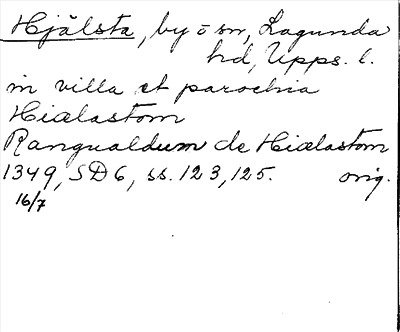 Hjälsta, by o sn, Lagunda
hd, Upps. l.
in villa et parochia
Hiælastom
Rangualdum de Hiælastom
1349, SD 6, ss. 123, 125. orig.
16/7